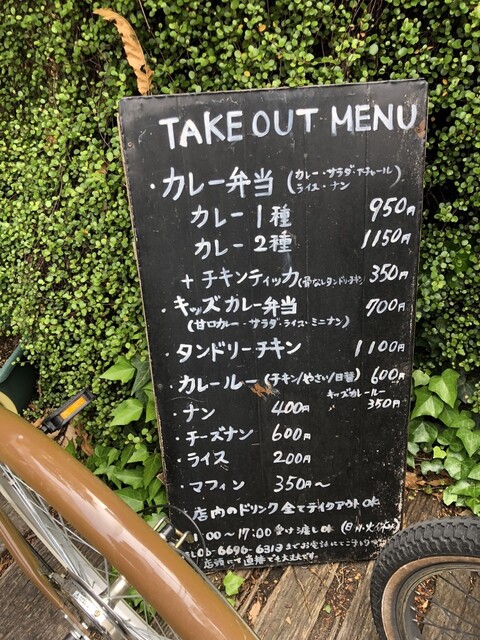 TAKE OUT MENU
・カレー弁当 (カレー・サラダ・アチャール
ライス・ナン)
カレー1種 950円
カレー2種 1150円
+チキンティッカ(骨なしタンドリーチキン 350円
・キッズカレー弁当 700円
(甘口カレー・サラダ・ライス・ミニナン)
・タンドリーチキン 1100円
・カレールー(チキン/やさい/日替) 600円
キッズカレールー 350円
・ナン 400円
・チーズナン 600円
・ライス 200円
・マフィン 350円〜
・店内のドリンク全てテイクアウトOK
:00〜17:00受け渡し
06-6696-6313までお電話にて
店頭にて直接でも大丈夫です。